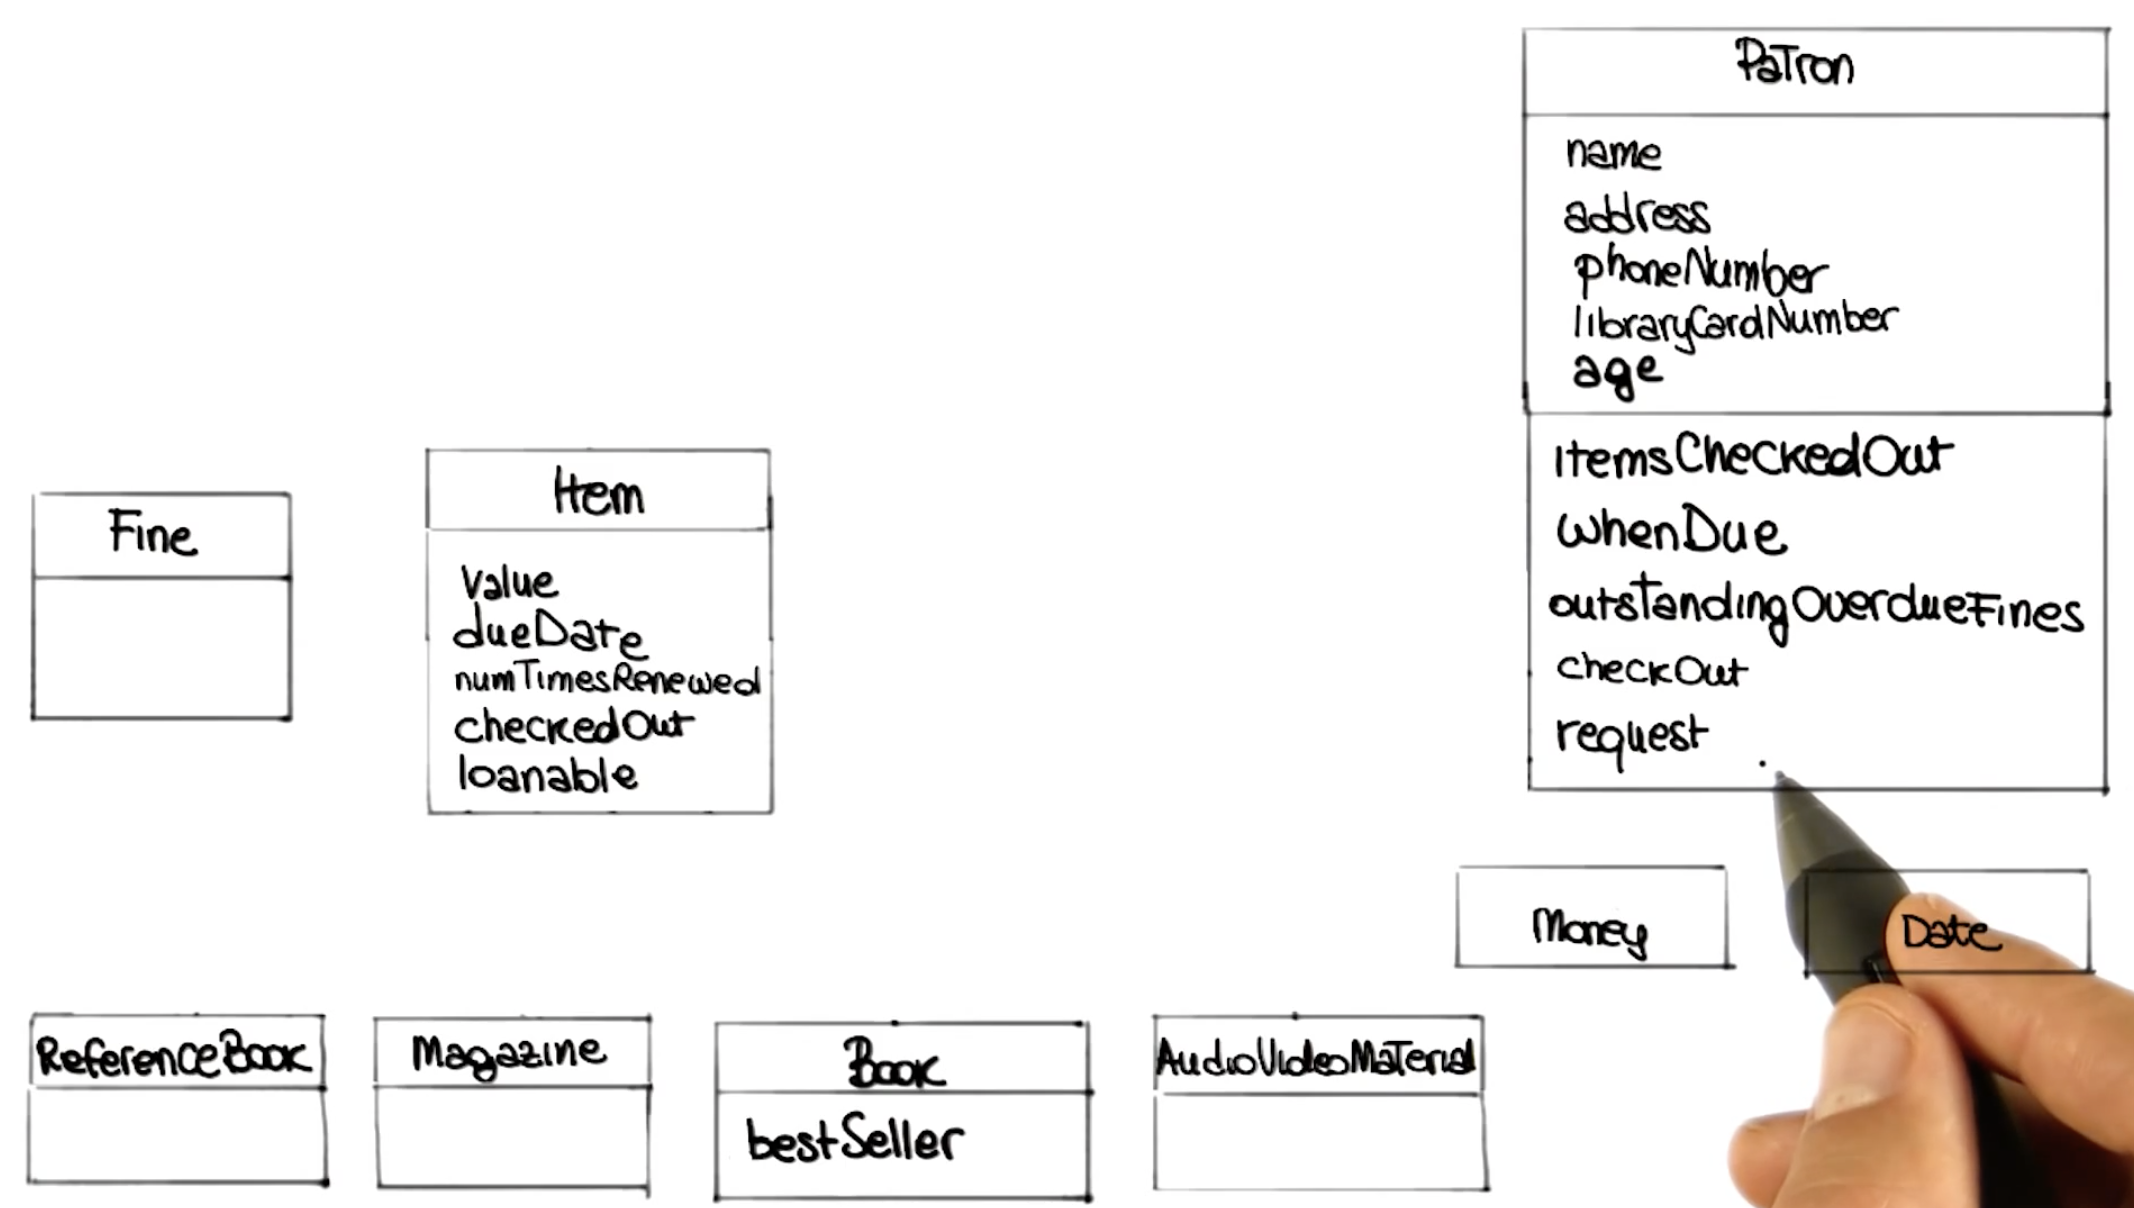 Patron
name
address
phoneNumber
libraryCardNumber
age
itemsCheckedOut
whenDue
outstandingOverdueFines
checkOut
request
Item
Value
dueDate
numTimesRenewed
checkedOut
loanable
Fine
Money
Date
ReferenceBook
Magazine
Book
bestSeller
AudioVideoMaterial